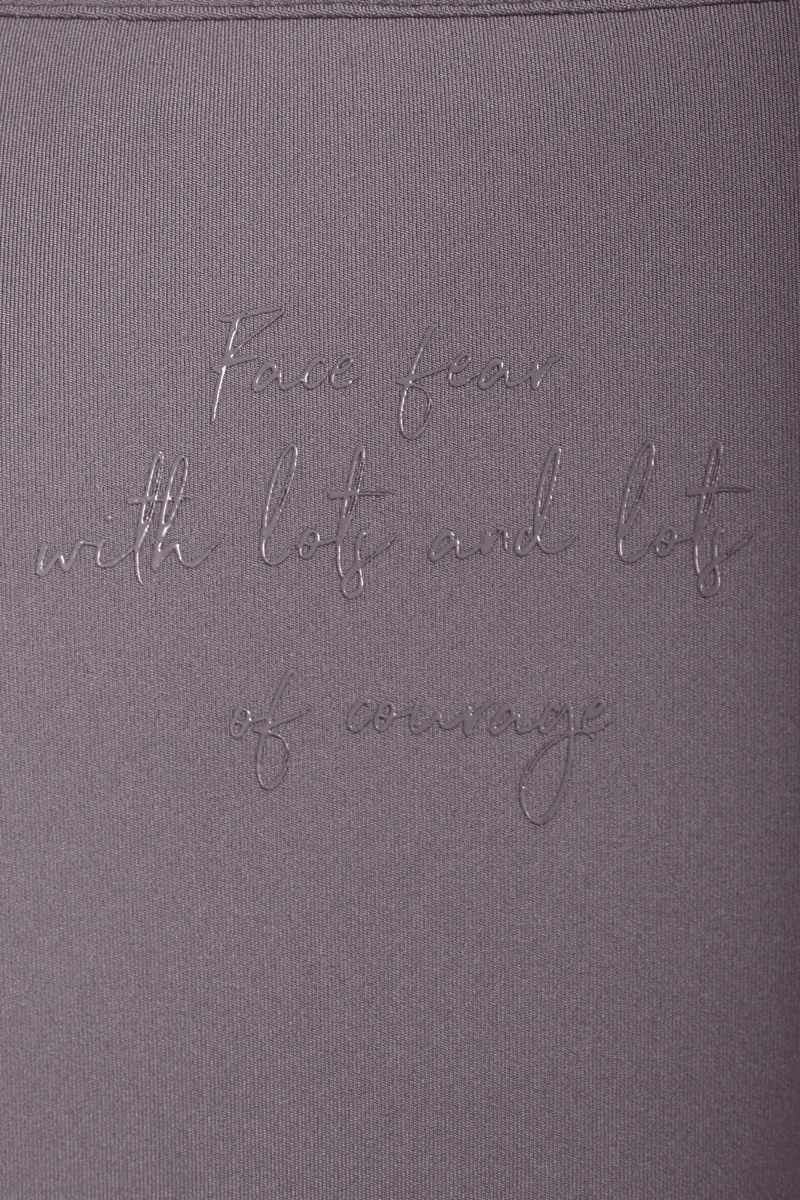 Face fear
with lots and lots
of courage